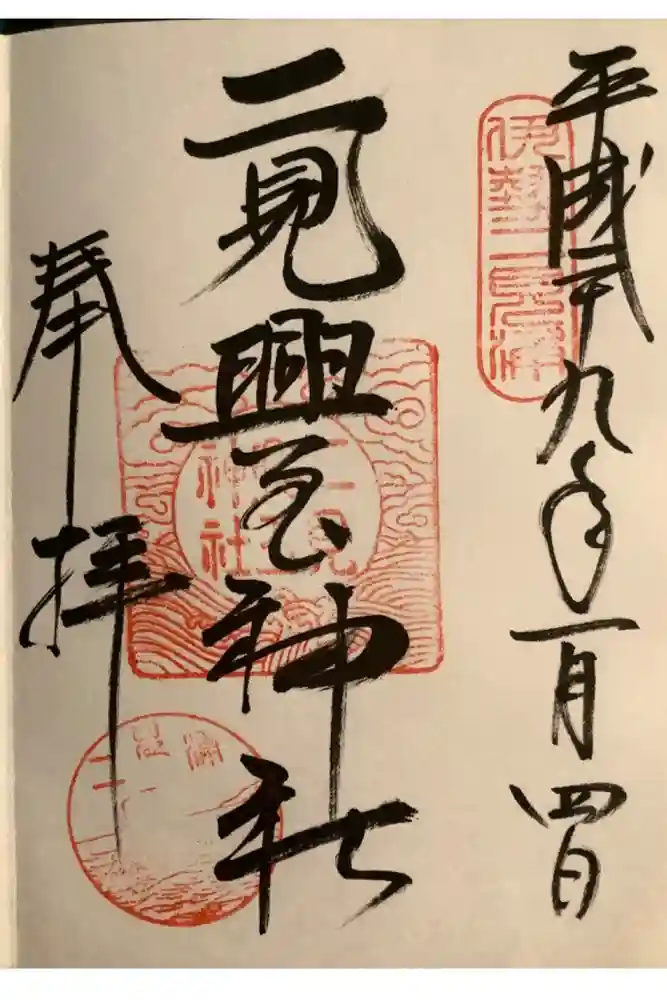 平成二十九年一月四日
伊勢二見浦
二見興玉神社
二見
神社
奉拝